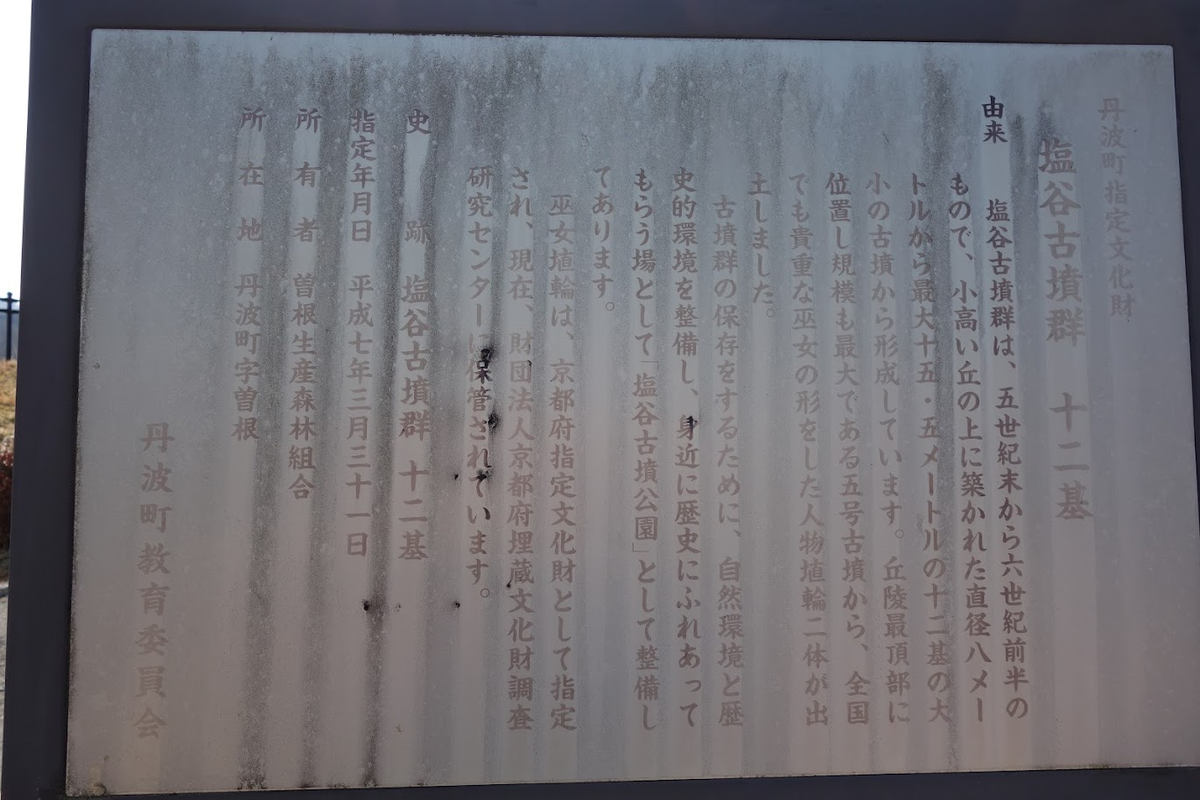 丹波町指定文化財
塩谷古墳群 十二基
由来 塩谷古墳群は、五世紀末から六世紀前半の
もので、小高い丘の上に築かれた直径八メー
トルから最大十五・五メートルの十二基の大
小の古墳から形成しています。丘陵最頂部に
位置し規模も最大である五号古墳から、全国
でも貴重な巫女の形をした人物埴輪二体が出
土しました。
古墳群の保存をするために、自然環境と歴
史的環境を整備し、身近に歴史にふれあって
もらう場として「塩谷古墳公園」として整備し
てあります。
巫女埴輪は、京都府指定文化財として指定
され、現在、財団法人京都府埋蔵文化財調査
研究センターに保管されています。
史跡 塩谷古墳群 十二基
指定年月日 平成七年三月三十一日
所有者 曽根生産森林組合
所在地 丹波町字曽根
丹波町教育委員会